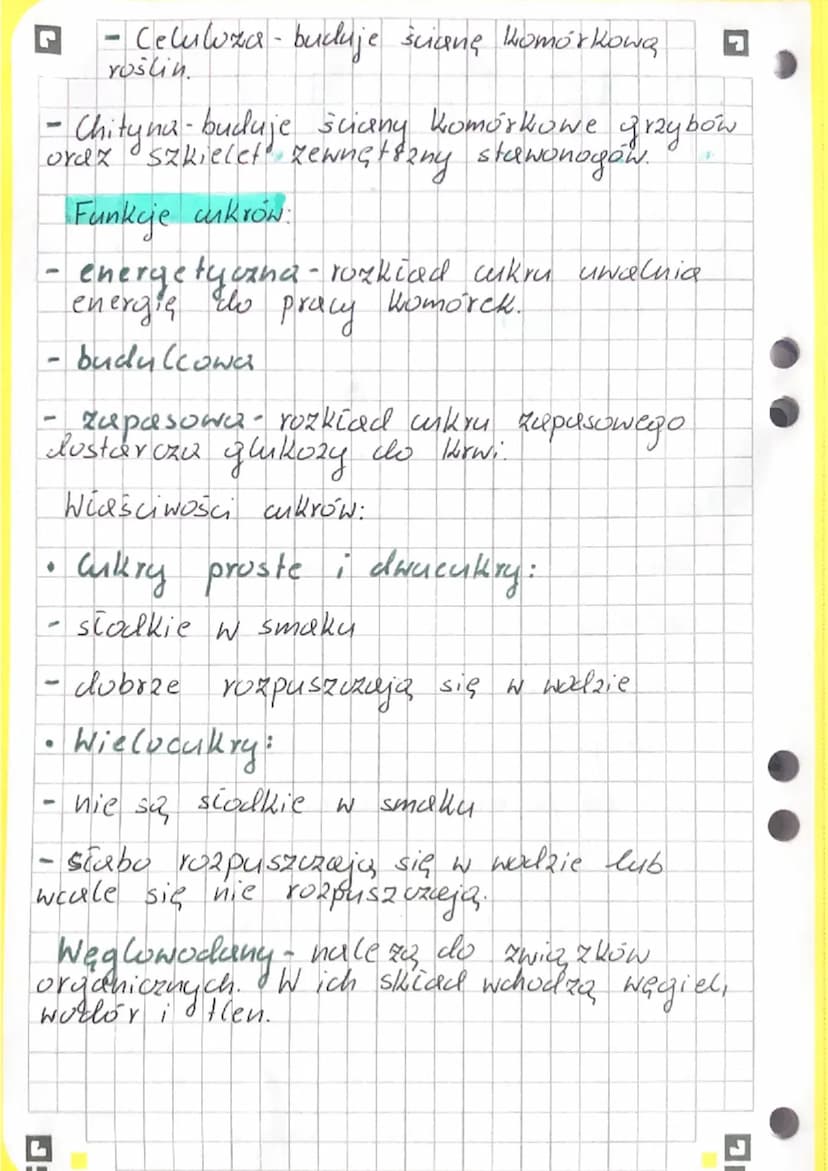 - Celuloza - buduje ścianę komórkową
roślin.
- Chityna - buduje ściany komórkowe grzybów
oraz szkielet zewnętrzny stawonogów.
Funkcje cukrów:
- energetyczna - rozkład cukru uwalnia
energię do pracy komórek.
- budulcowa
- zapasowa - rozkład cukru zapasowego
dostarcza glukozy do krwi.
Właściwości cukrów:
• Cukry proste i dwucukry:
- słodkie w smaku
- dobrze rozpuszczają się w wodzie
• Wielocukry:
- nie są słodkie w smaku
- słabo rozpuszczają się w wodzie lub
wcale się nie rozpuszczają.
Węglowodany - należą do związków
organicznych. W ich skład wchodzą węgiel,
wodór i tlen.